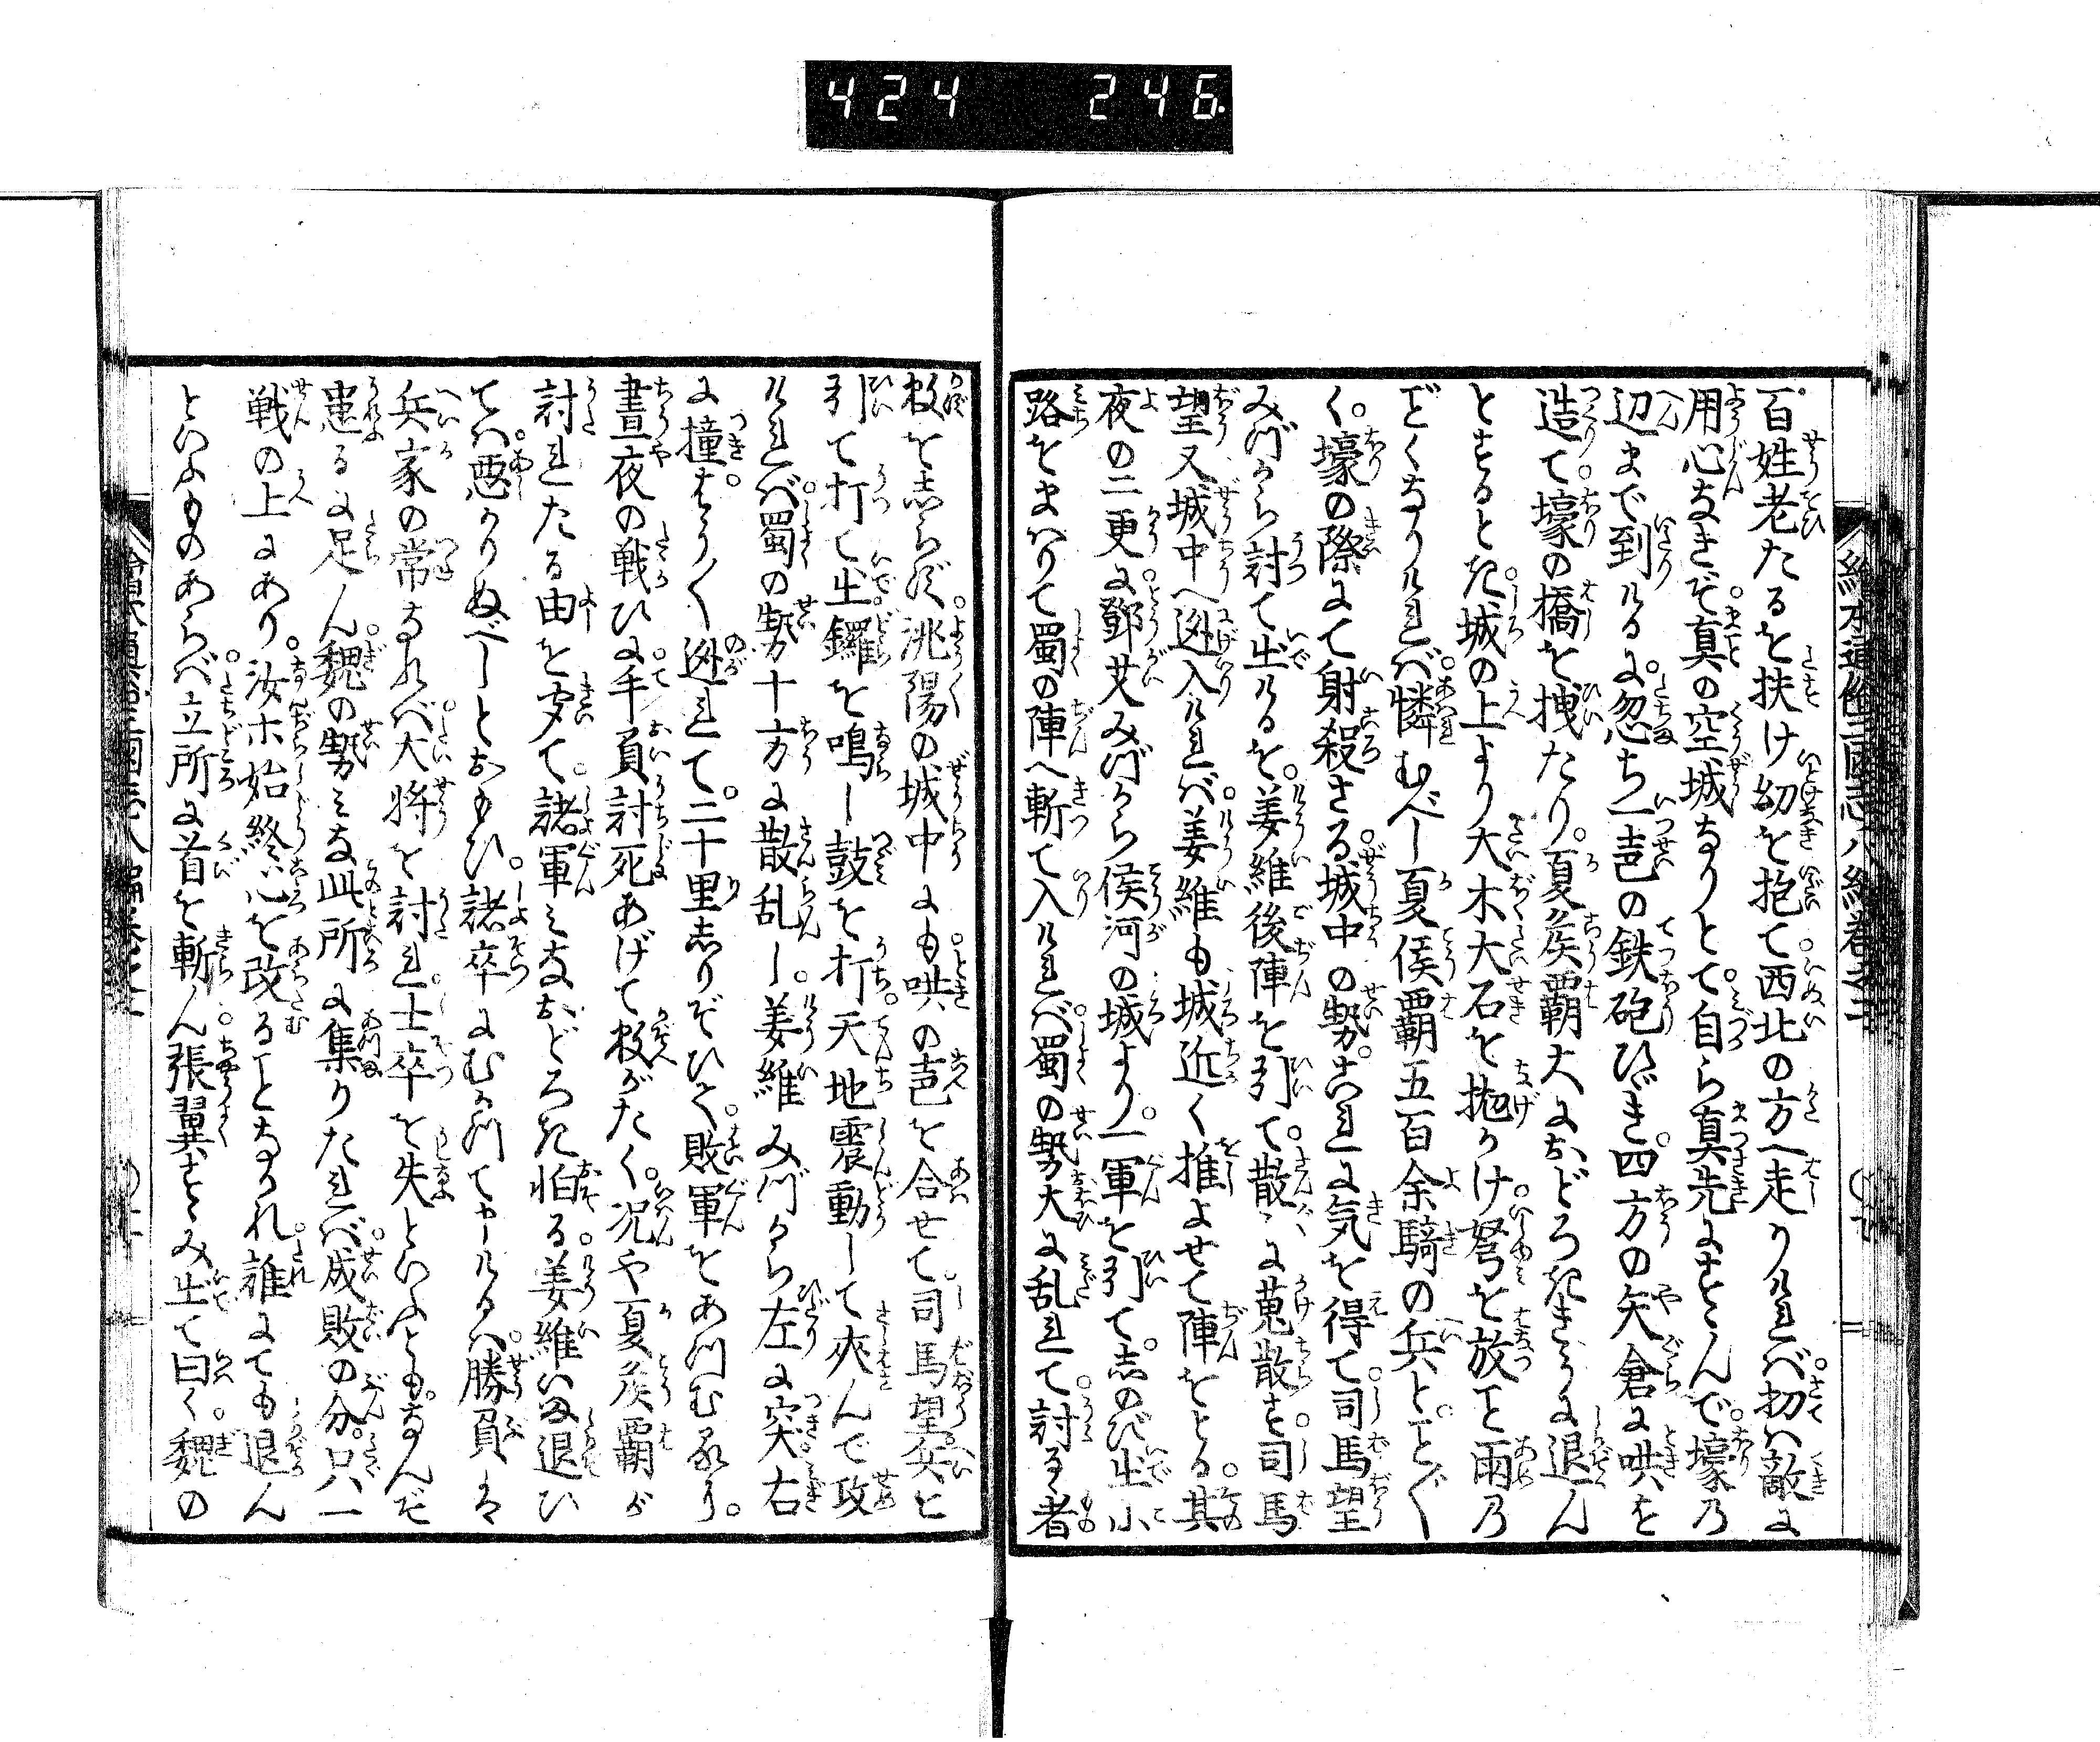 424 246.
百姓老たるを扶け幼を抱て西北の方へ走りければ扨は敵に
用心なきぞ真の空城なりとて自ら真先にすゝんで壕の
辺まで到りけるに忽ち一声の鉄砲ひゞき四方の矢倉に哄を
造て壕の橋を拽たり夏侯覇大におどろききうに退ん
とするとき城の上より大木大石を抛かけ弩を放こと雨の
ごとくなりければ憐むべし夏侯覇五百余騎の兵とこと〴〵
く壕の際にて射殺さる城中の勢これに気を得て司馬望
みづから討て出けるを姜維後陣を引て散〻に蒐散す司馬
望又城中へ逃入ければ姜維も城近く推よせて陣をとる其
夜の二更に鄧艾みづから侯河の城より一軍を引てしのび出小
路をまはりて蜀の陣へ斬て入ければ蜀の勢大に乱れて討るゝ者
数をしらず洮陽の城中にも哄の声を合せて司馬望兵を
引て打て出鑼を鳴し鼓を打天地震動して夾んで攻
ければ蜀の勢十方に散乱し姜維みづから左に突右
に撞やう〳〵逃れて二十里しりぞひて敗軍をあつむるに
昼夜の戦ひに手負討死あげて数がたく況や夏侯覇が
討れたる由を聞て諸軍みなおどろき怕る姜維いま退ひ
ては悪かりぬべしとおもひ諸卒にむかつて申けるは勝負は
兵家の常なれば大将を討れ士卒を失といふともなんぞ
患るに足ん魏の勢みな此所に集りたれば成敗の分只一
戦の上にあり汝ホ始終心を改ることなかれ誰にても退ん
といふものあらば立所に首を斬ん張翼すゝみ出て曰く魏の